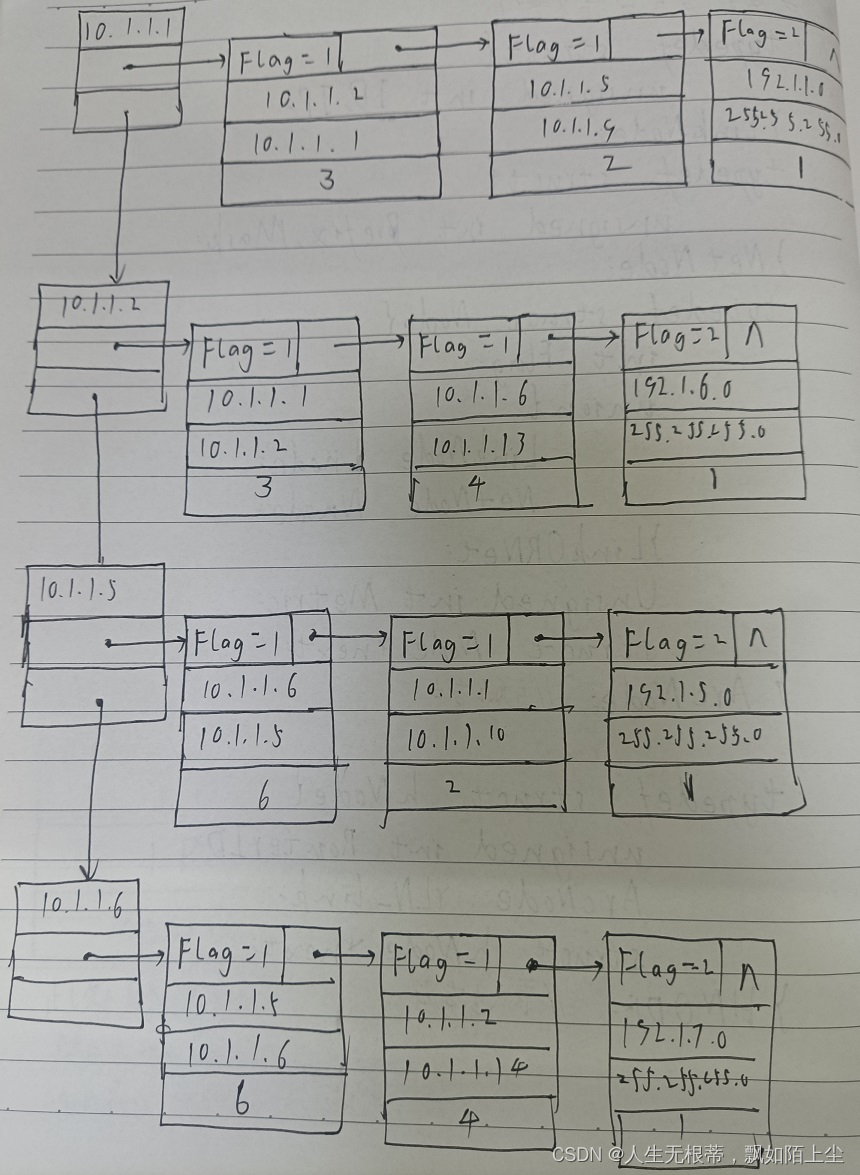 10.1.1.1
Flag=1 Flag=1 Flag=2 ∧
10.1.1.2 10.1.1.5 192.1.1.0
10.1.1.1 10.1.1.9 255.255.255.0
3 2 1
10.1.1.2
Flag=1 Flag=1 Flag=2 ∧
10.1.1.1 10.1.1.6 192.1.6.0
10.1.1.2 10.1.1.13 255.255.255.0
3 4 1
10.1.1.5
Flag=1 Flag=1 Flag=2 ∧
10.1.1.6 10.1.1.1 192.1.5.0
10.1.1.5 10.1.1.10 255.255.255.0
6 2 1
10.1.1.6
Flag=1 Flag=1 Flag=2 ∧
10.1.1.5 10.1.1.2 192.1.7.0
10.1.1.6 10.1.1.14 255.255.255.0
6 4 1
CSDN @人生无根蒂，飘如陌上尘